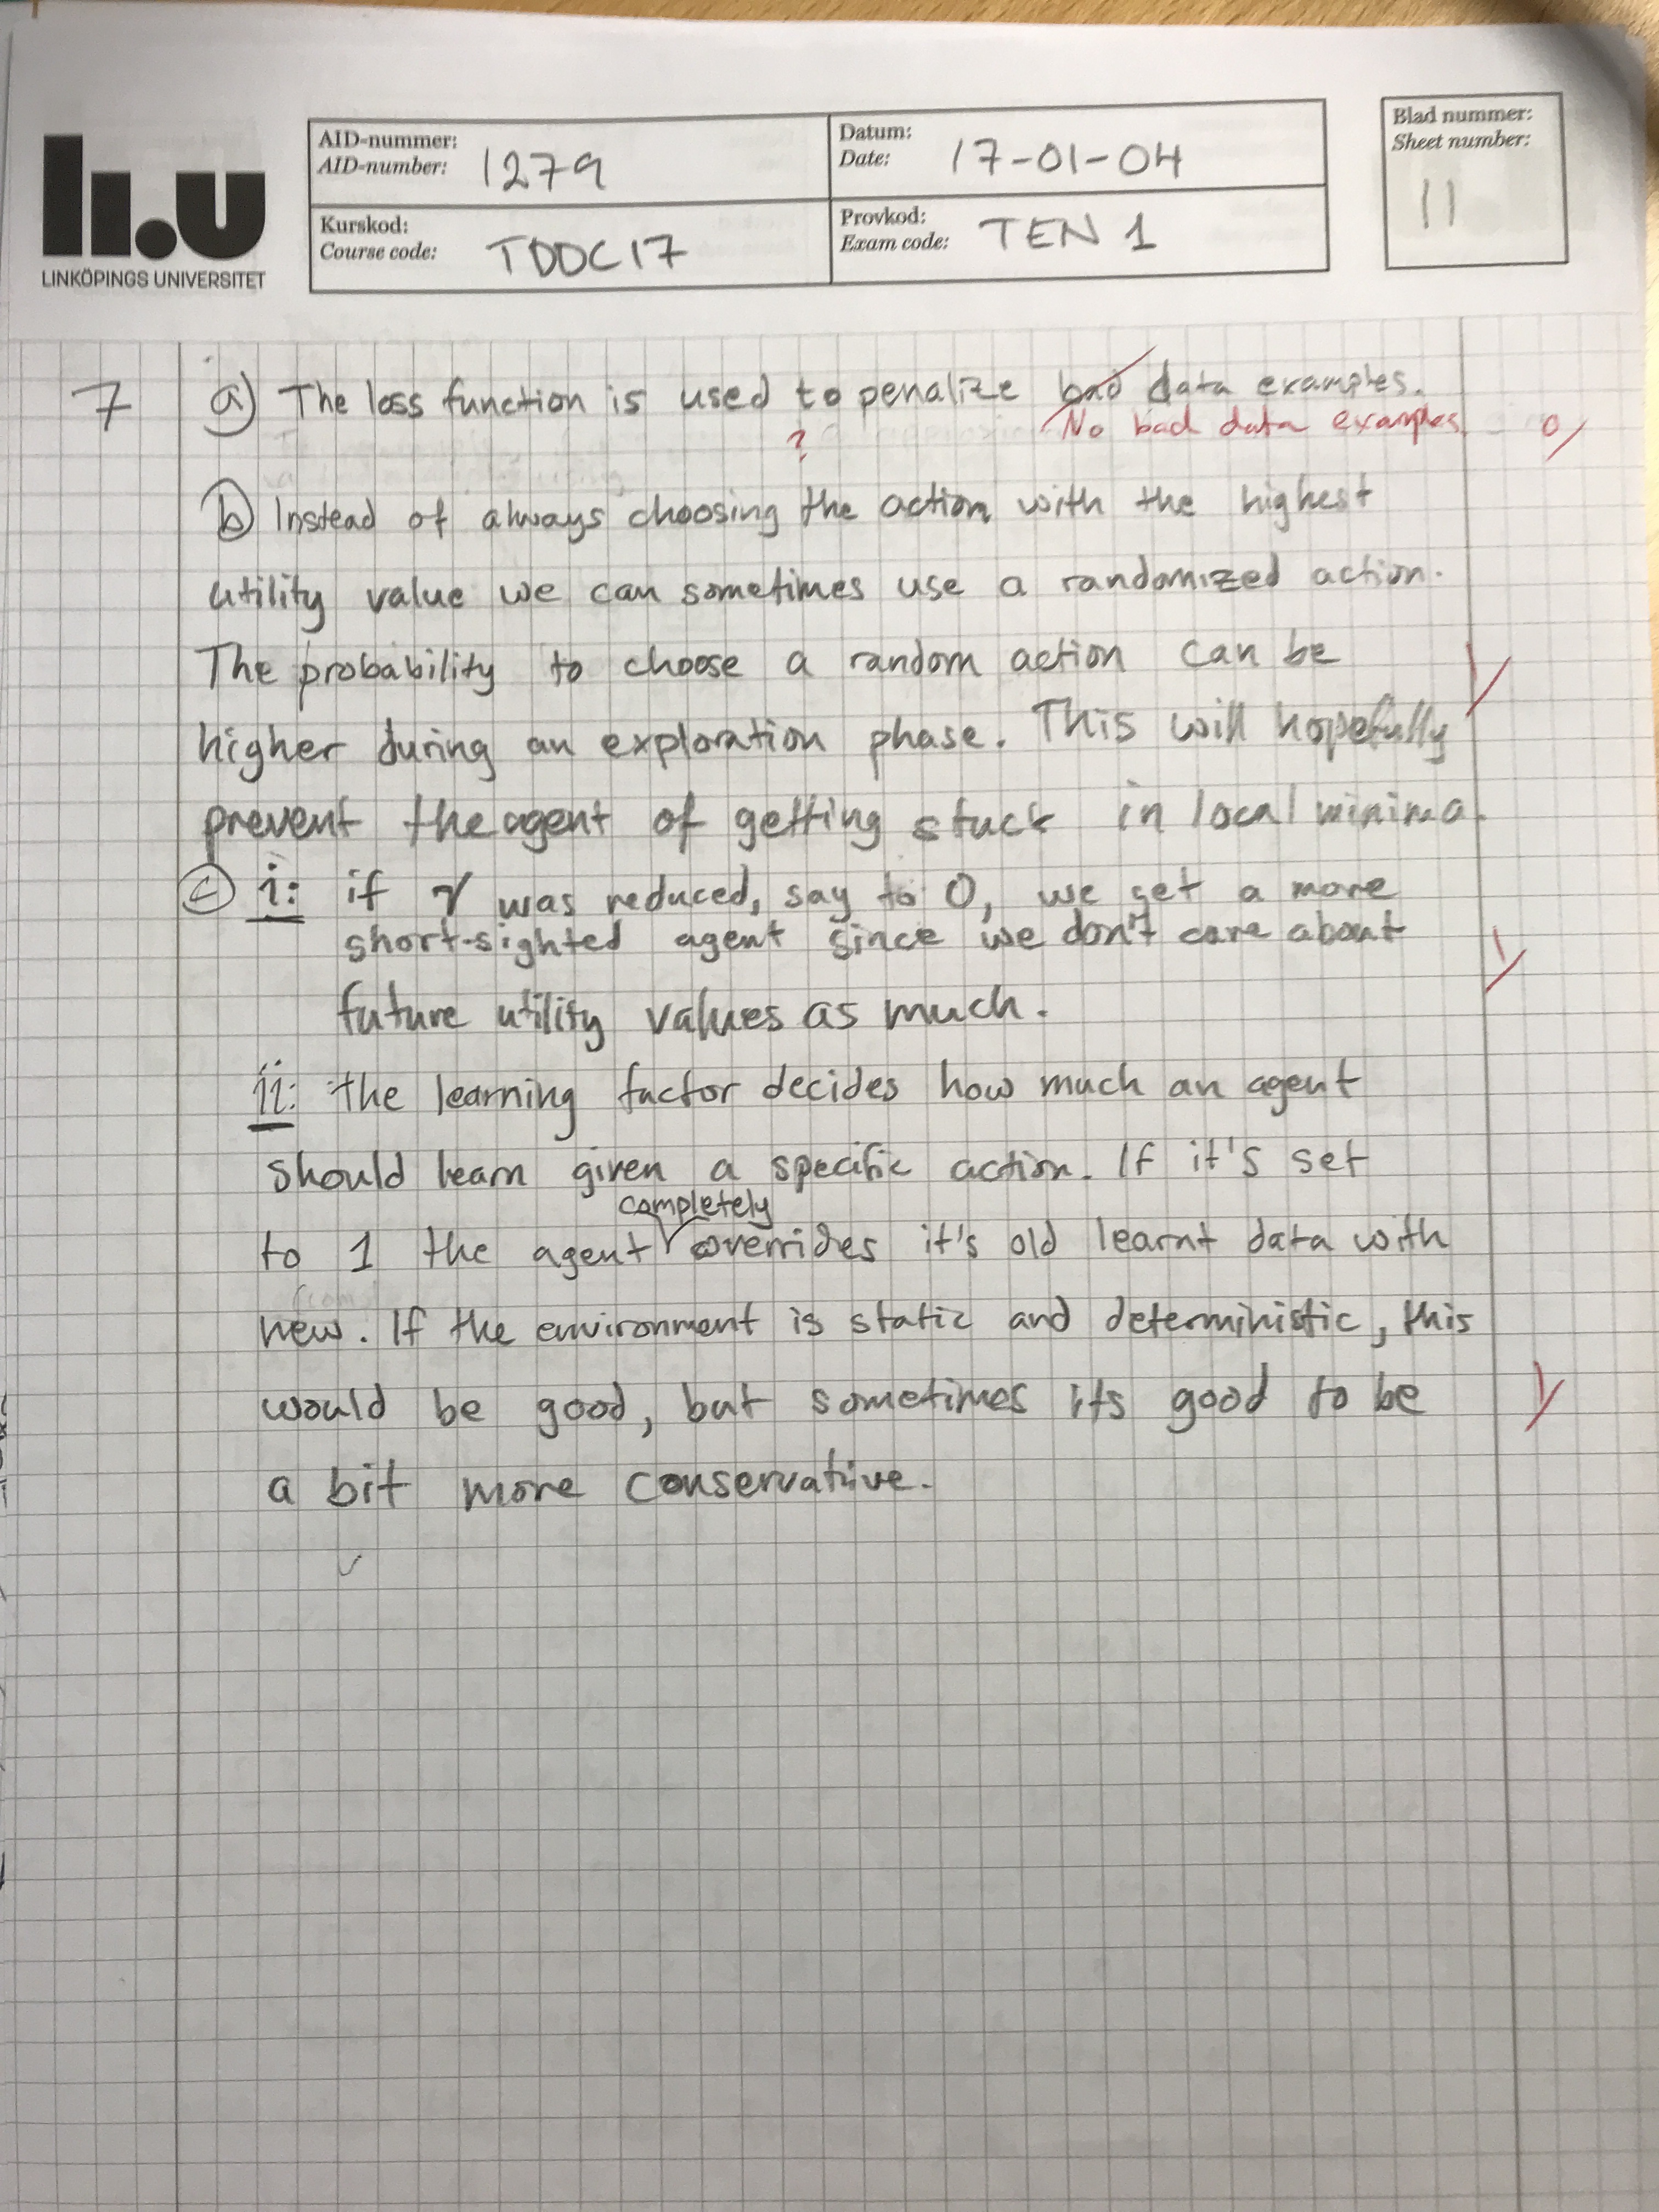 li.u
LINKÖPINGS UNIVERSITET
AID-nummer:
AID-number: 1279
Datum:
Date: 17-01-04
Kurskod:
Course code: TDDC17
Provkod:
Exam code: TEN 1
Blad nummer:
Sheet number:
11
7 a) The loss function is used to penalize bad data examples.
? No bad data examples. 0/
b) Instead of always choosing the action with the highest
utility value we can sometimes use a randomized action.
The probability to choose a random action can be 1/
higher during an exploration phase. This will hopefully
prevent the agent of getting stuck in local minima.
c) i: if γ was reduced, say to 0, we get a more
short-sighted agent since we don't care about 1/
future utility values as much.
ii: the learning factor decides how much an agent
should learn given a specific action. If it's set
completely
to 1 the agent overrides it's old learnt data with
new. If the environment is static and deterministic, this
would be good, but sometimes its good to be 1/
a bit more conservative.